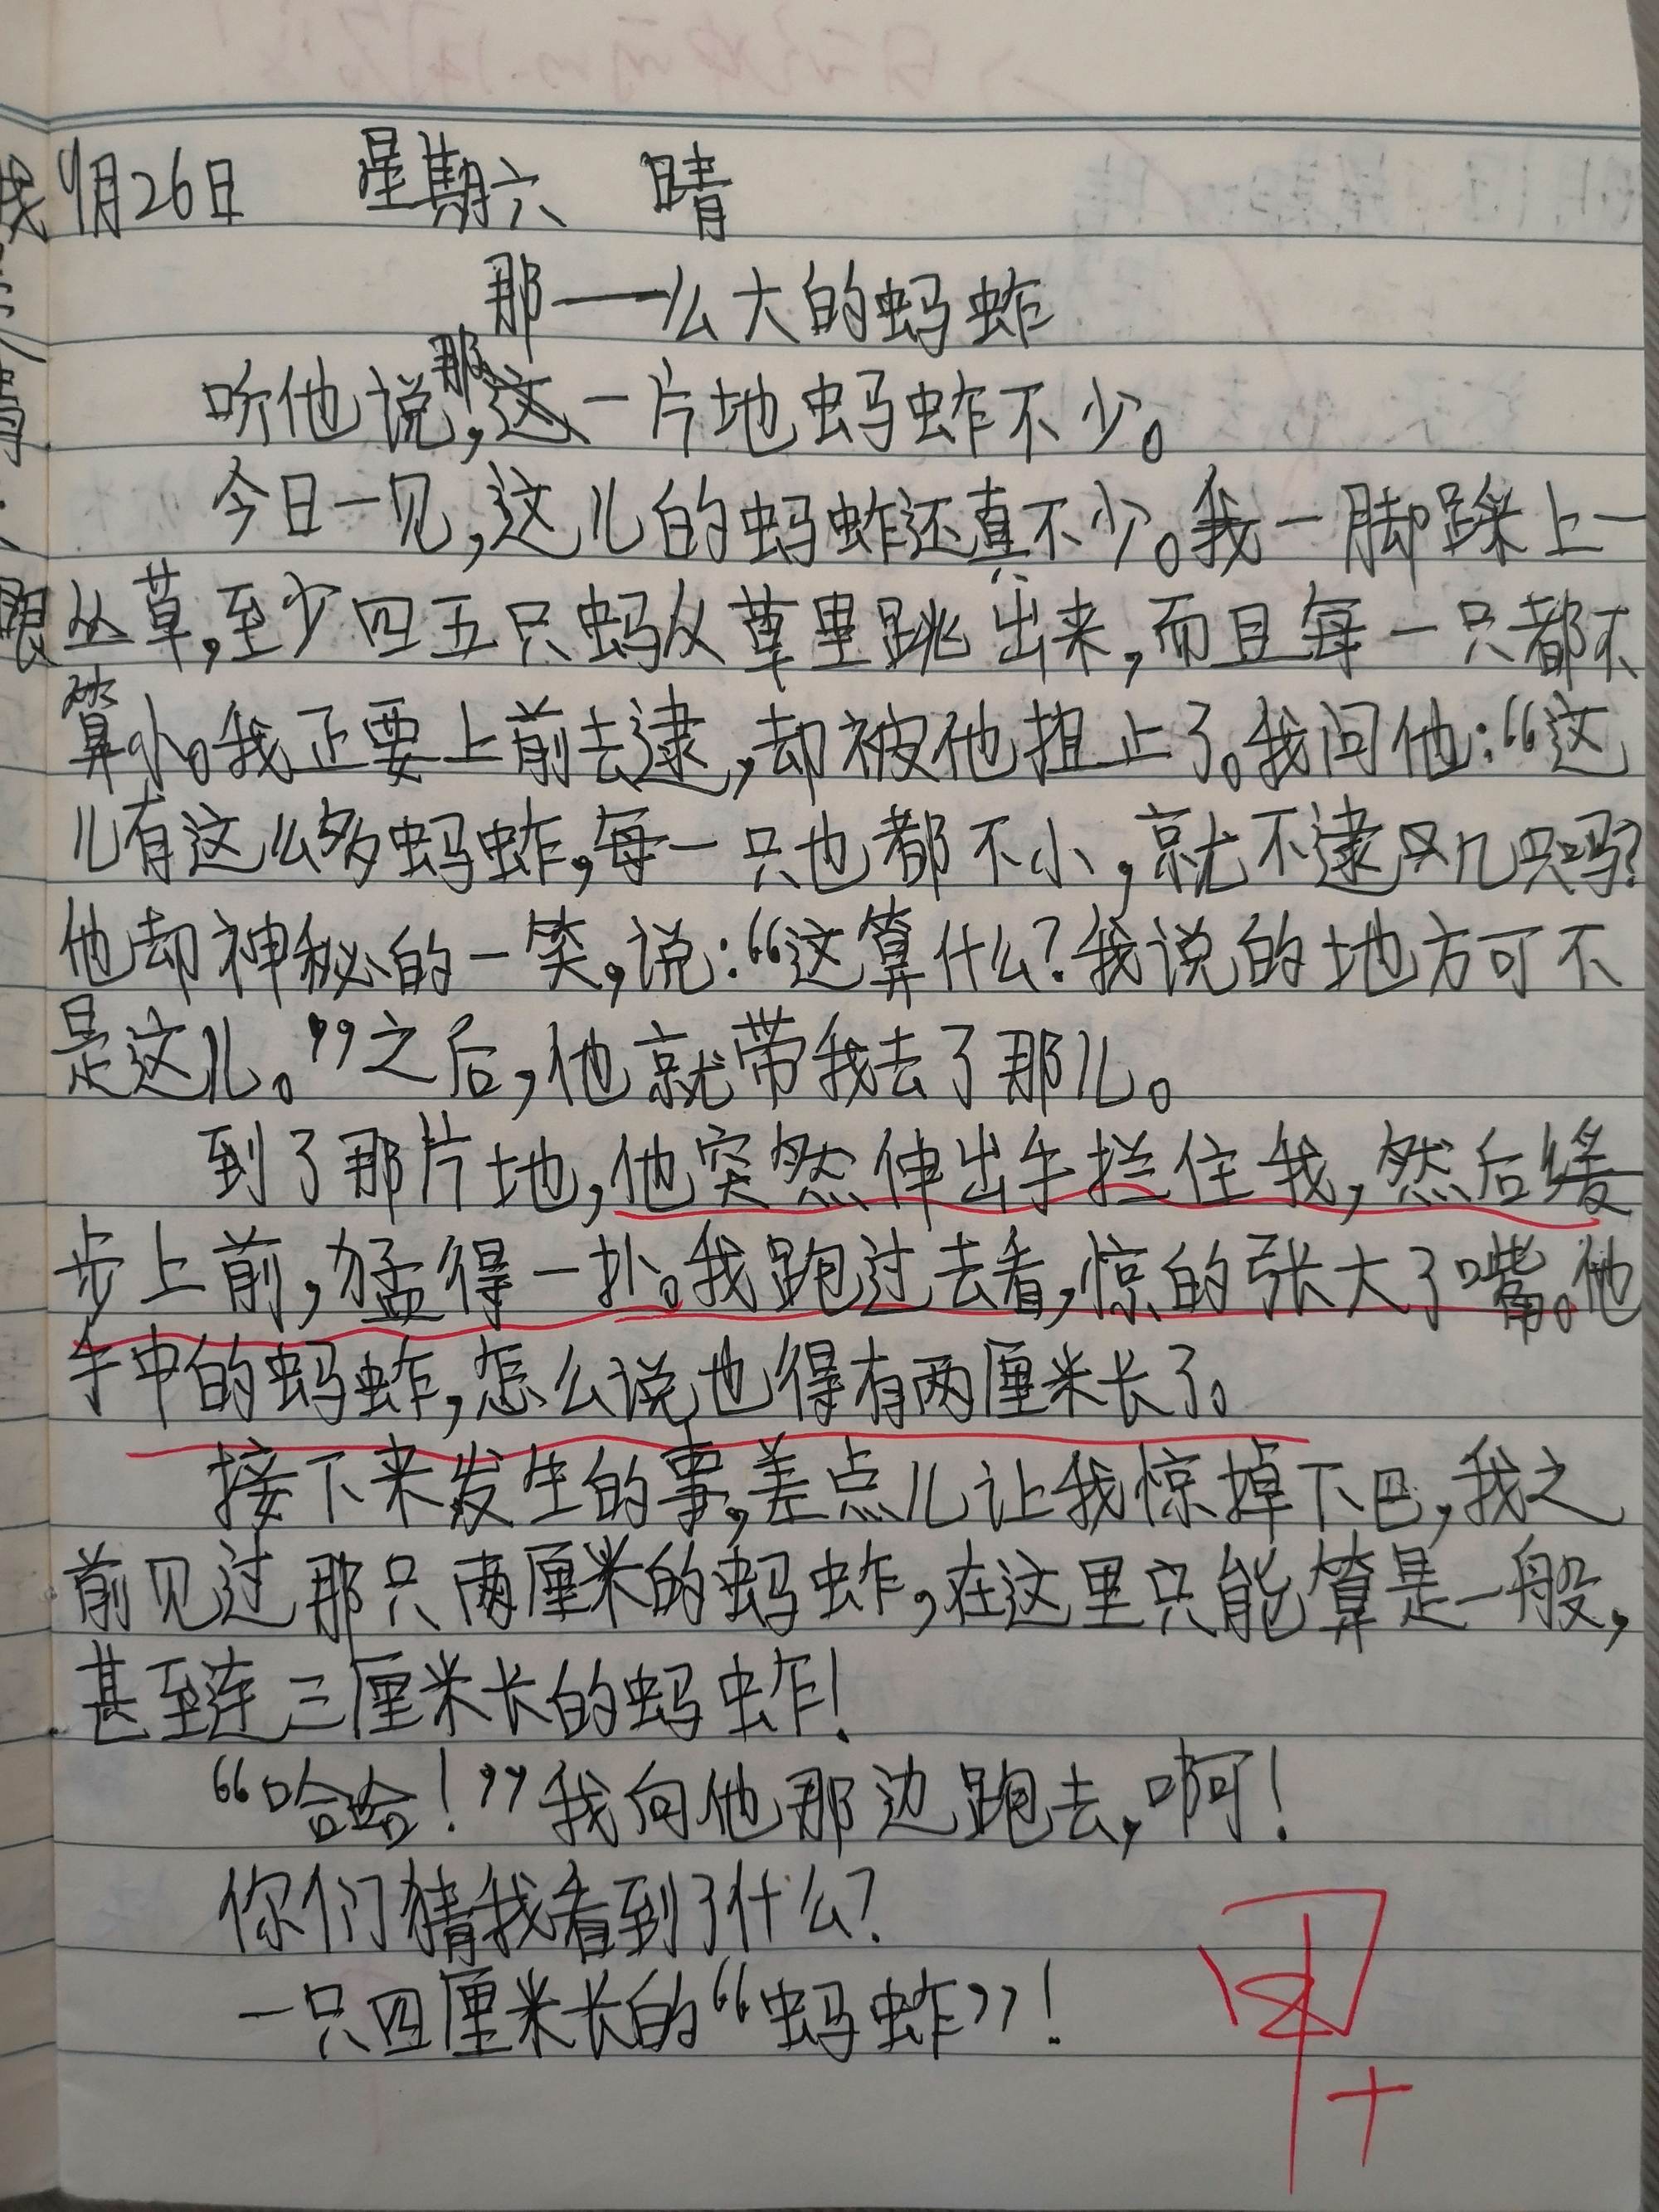 9月26日 星期六 晴
那一么大的蚂蚱
听他说,那这一片地蚂蚱不少。
今日一见,这儿的蚂蚱还真不少。我一脚踩上一
丛草,至少四五只蚂从草里跳出来,而且每一只都不
算小。我正要上前去逮,却被他担止了。我问他:“这
儿有这么多蚂蚱,每一只也都不小,就不逮几只吗?
他却神秘的一笑,说:“这算什么?我说的地方可不
是这儿。”之后,他就带我去了那儿。
到了那片地,他突然伸出手拦住我,然后缓
步上前,猛得一扑。我跑过去看,惊的张大了嘴。他
手中的蚂蚱,怎么说也得有两厘米长了。
接下来发生的事,差点儿让我惊掉下巴,我之
前见过那只两厘米的蚂蚱,在这里只能算是一般,
甚至连三厘米长的蚂蚱!
“哈哈!”我向他那边跑去,啊!
你们猜我看到了什么?
一只四厘米长的“蚂蚱”!
甲+